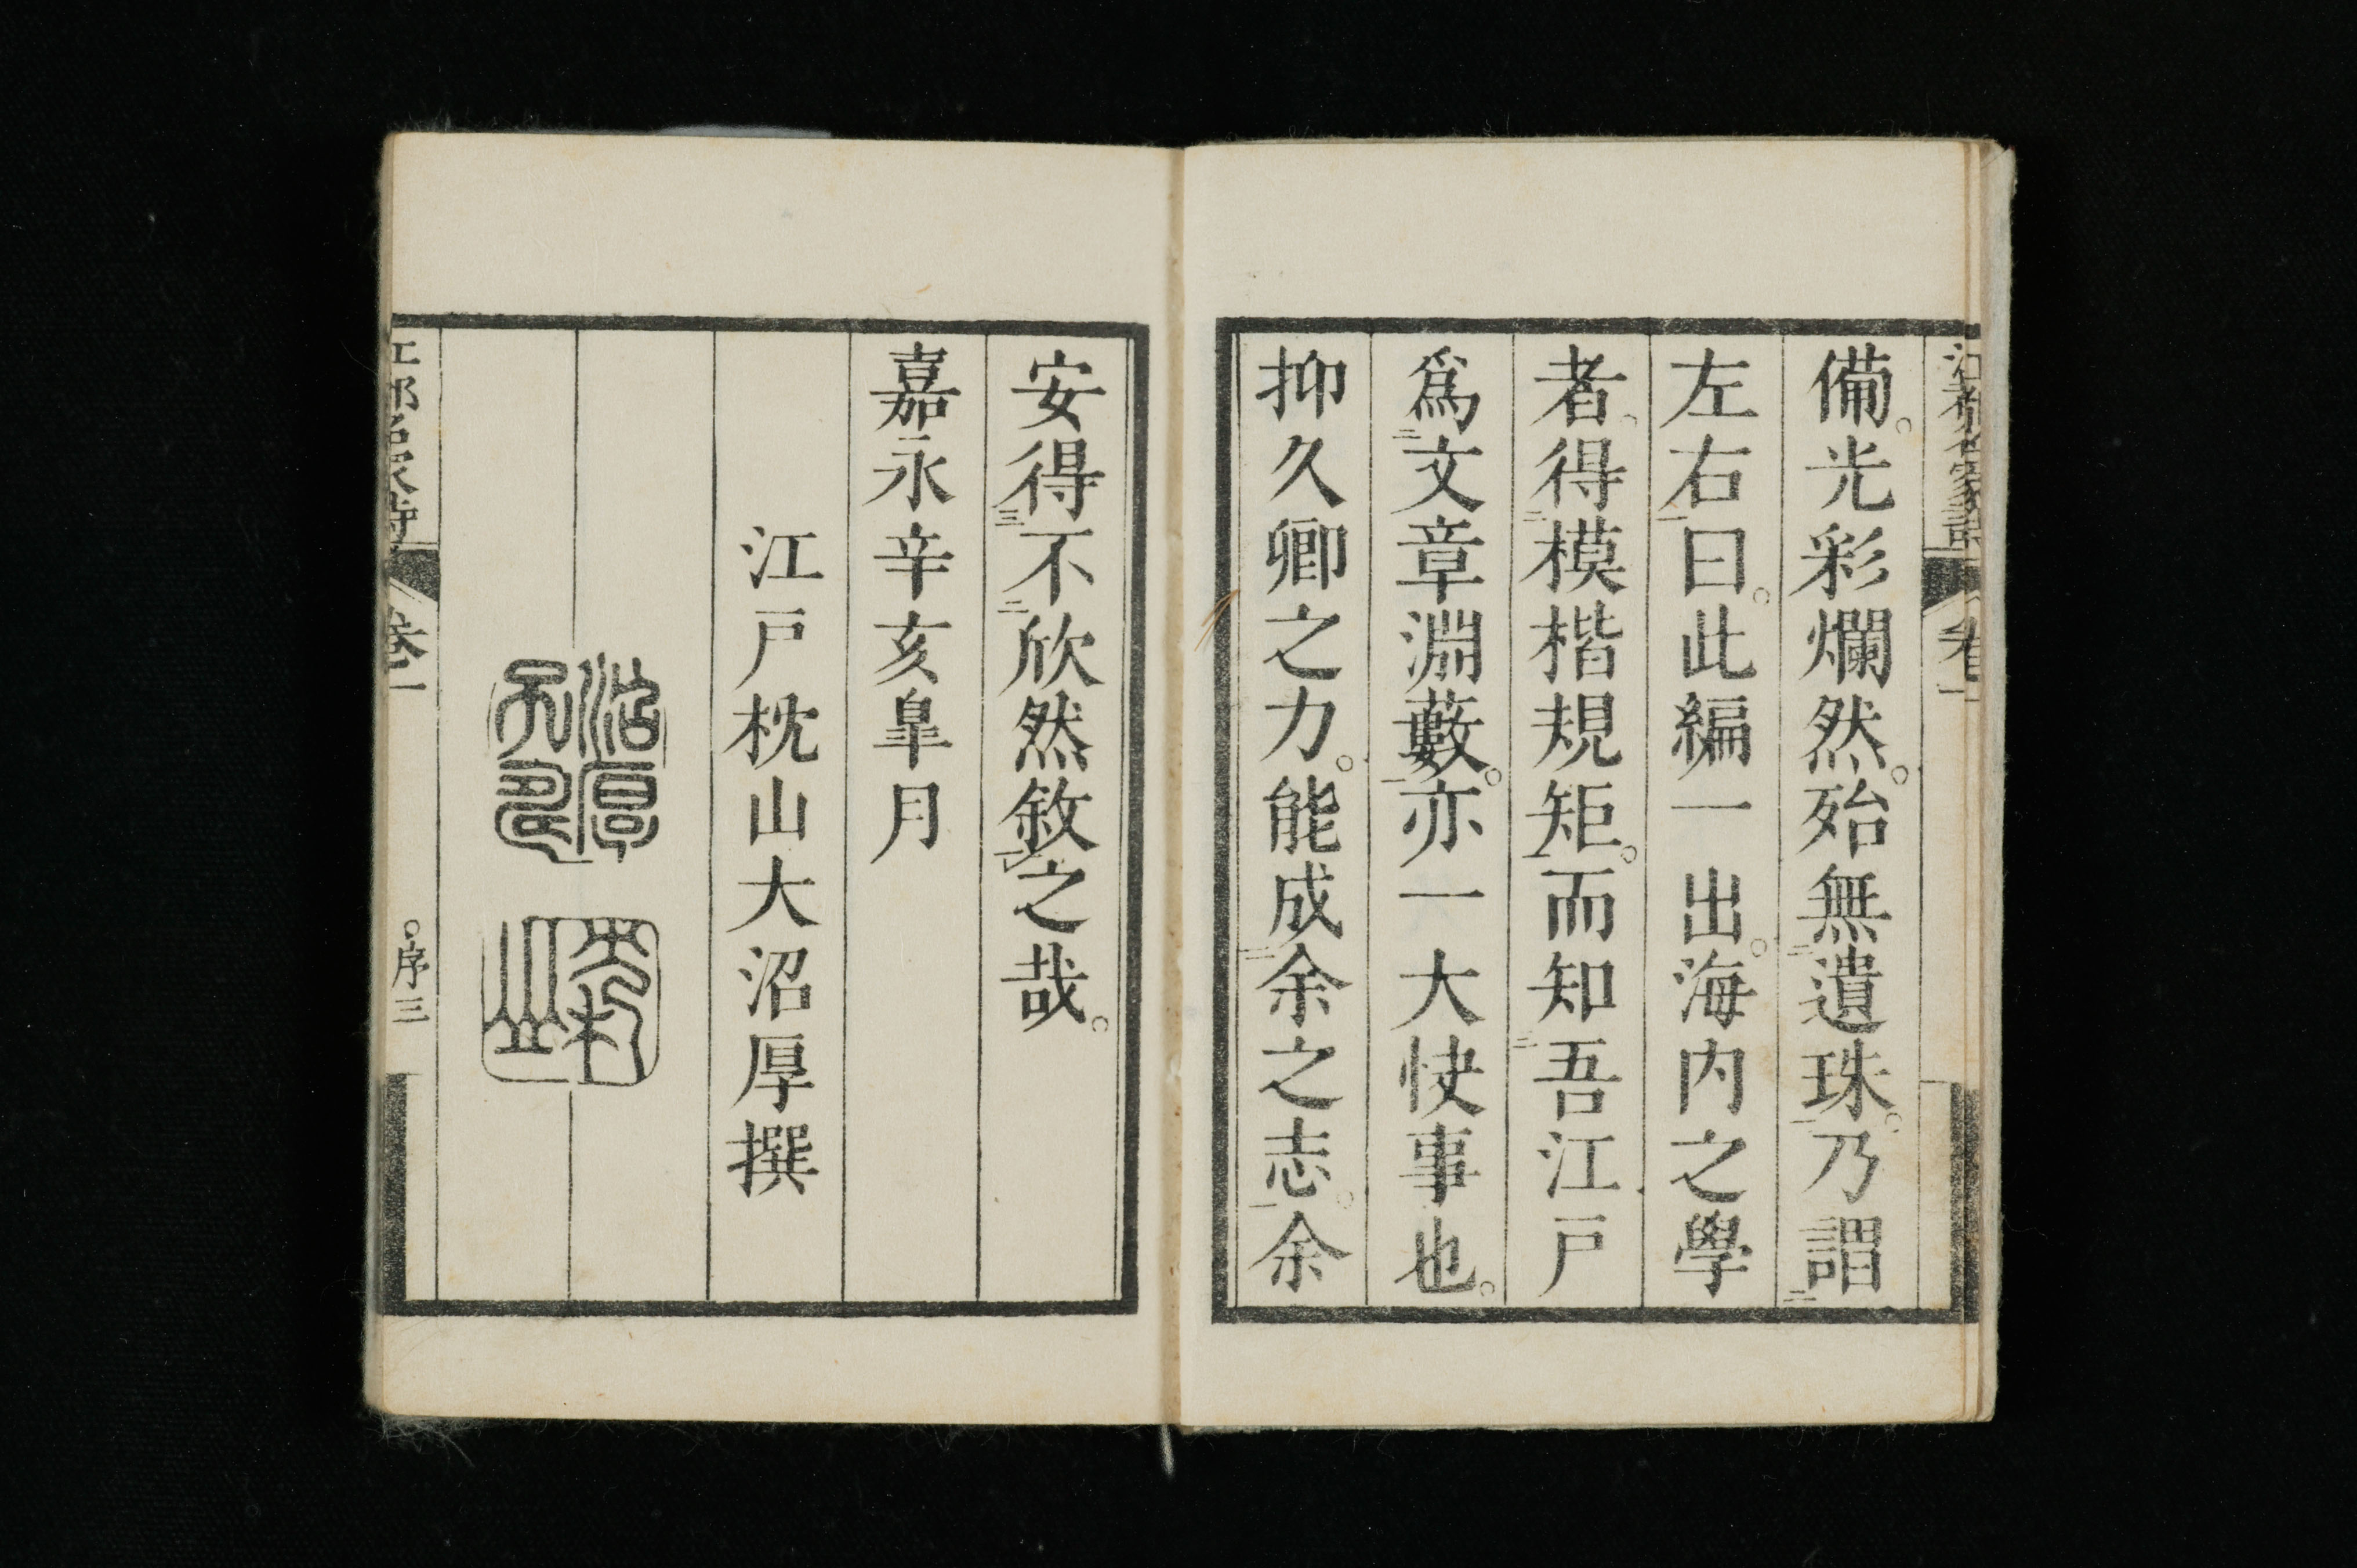 備。光彩爛然。殆無遺珠。乃謂
左右曰。此編一出。海内之學
者。得模楷規矩。而知吾江戸
爲文章淵藪。亦一大快事也。
抑久卿之力。能成余之志。余
安得不欣然敘之哉。
嘉永辛亥皐月
江戸枕山大沼厚撰
沼厚
枕山
江都名家詩 卷一 〇序三